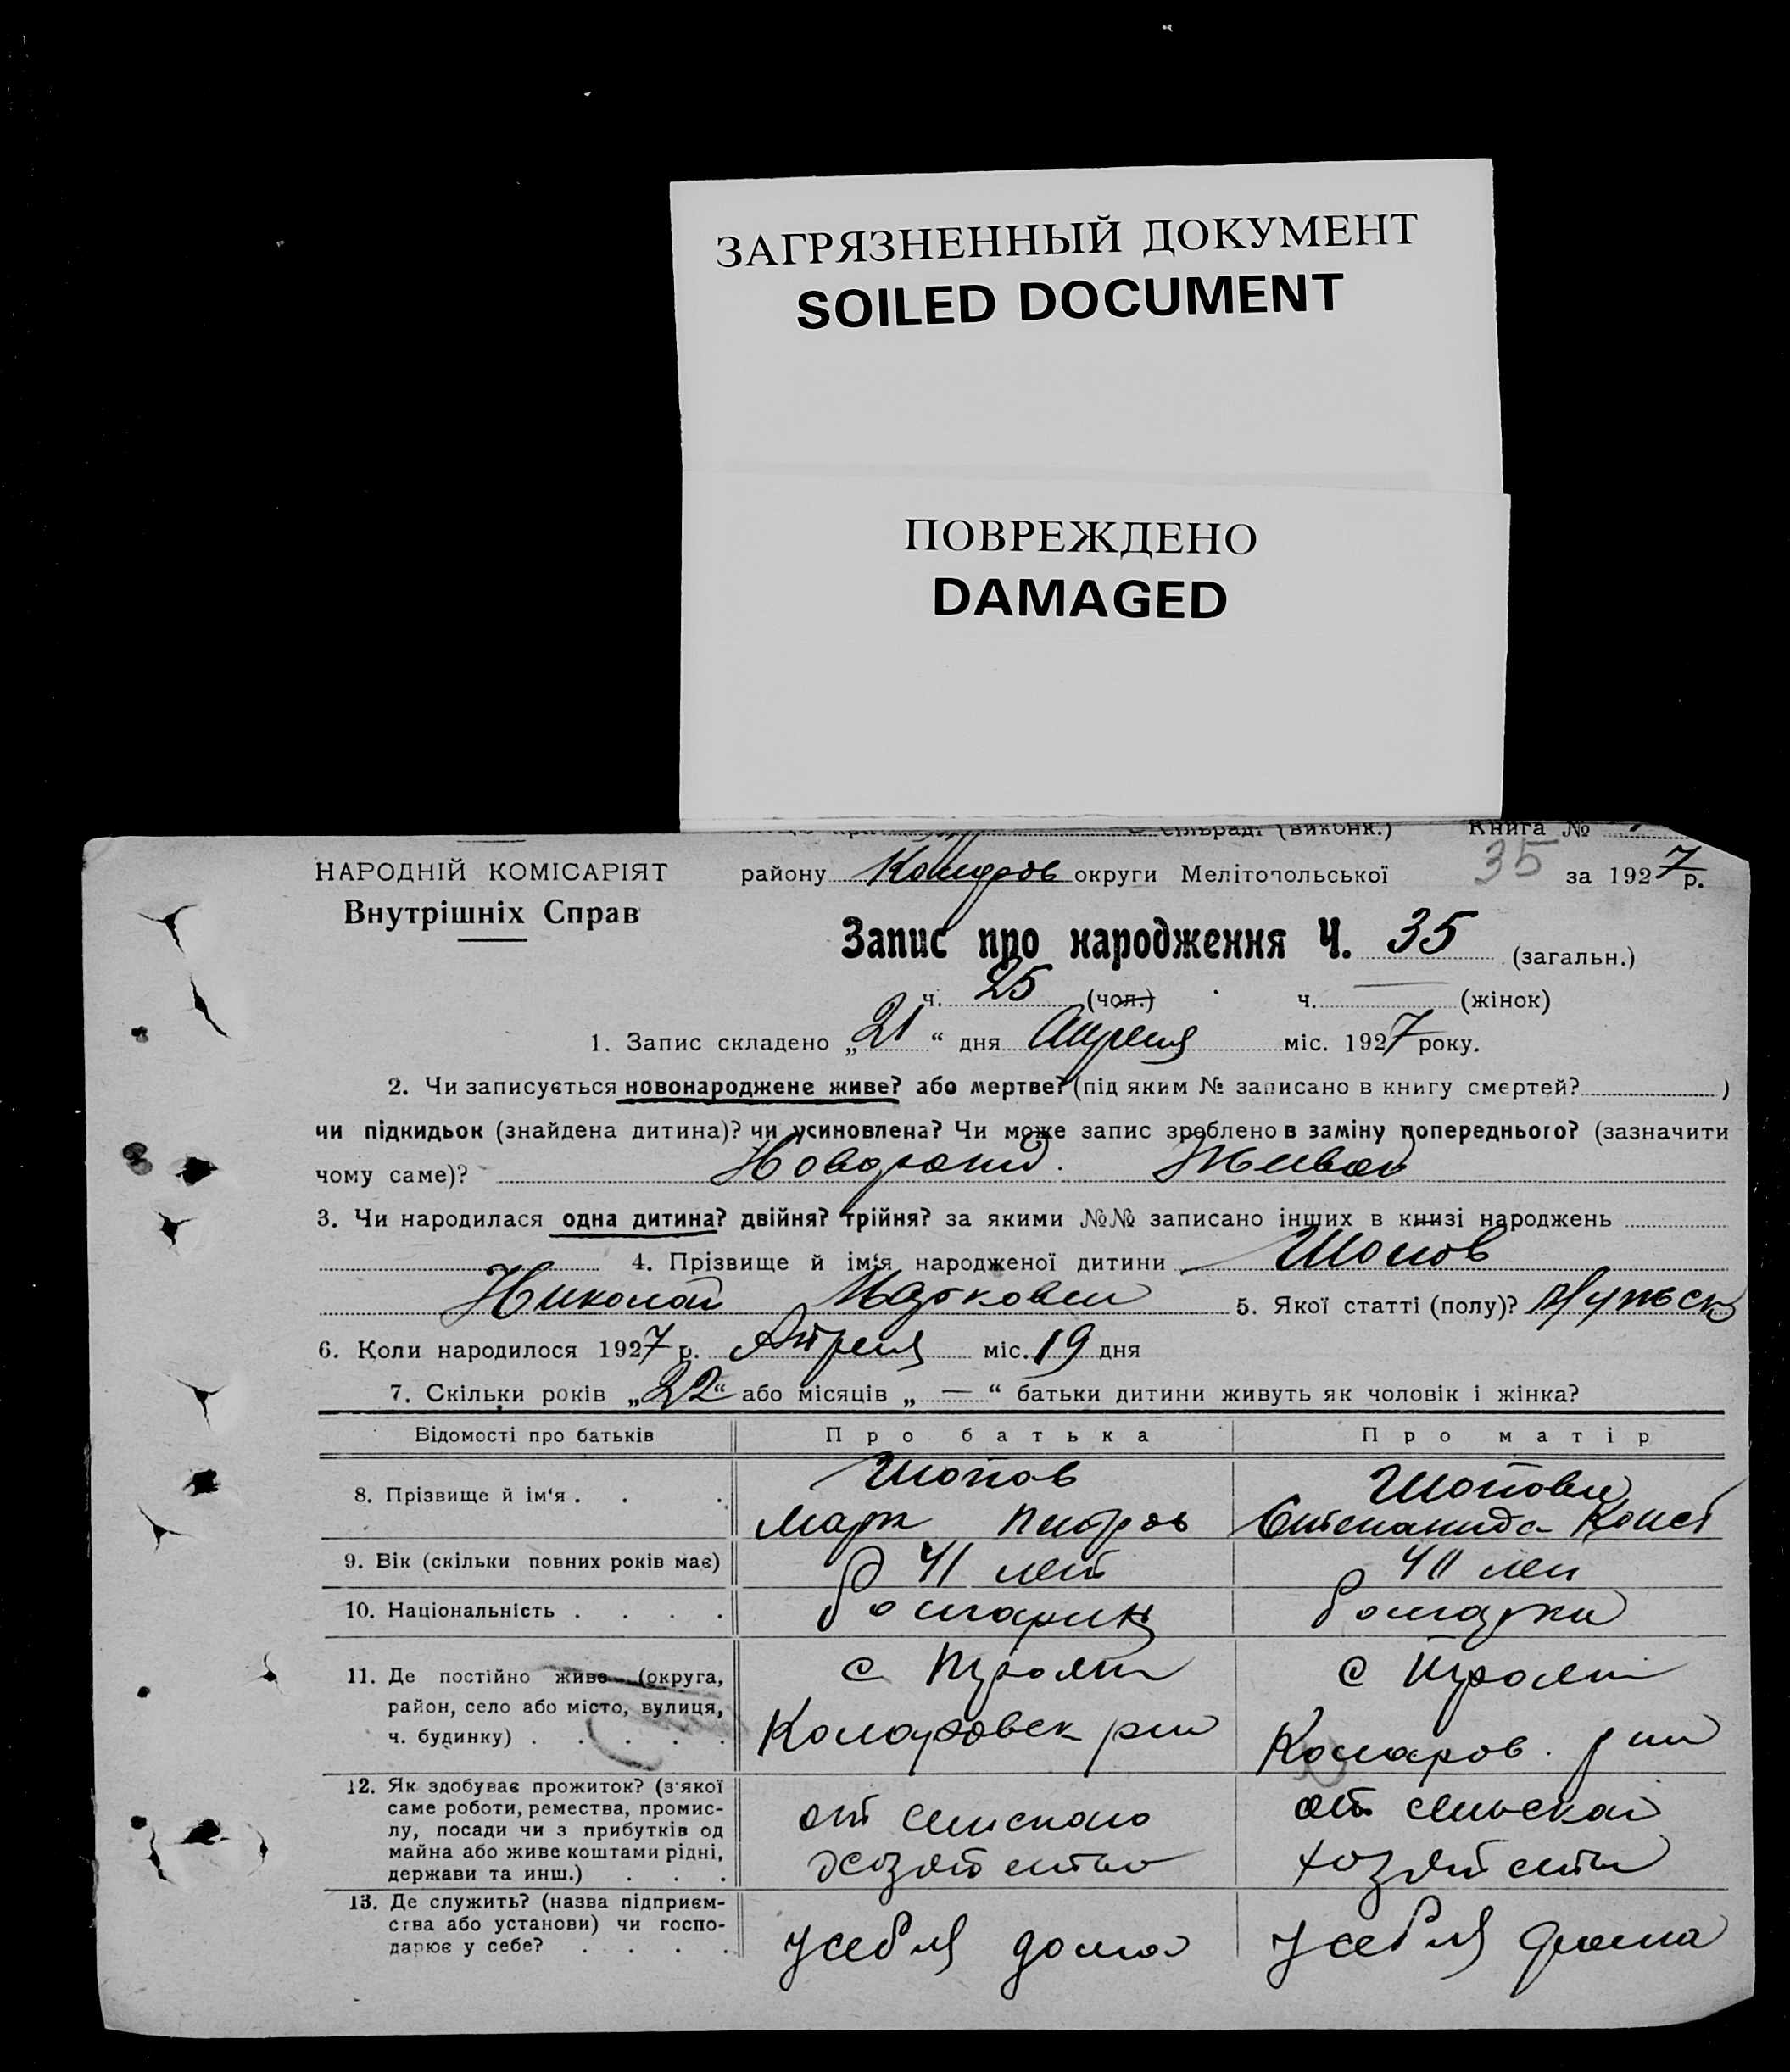 ЗАГРЯЗНЕННЫЙ ДОКУМЕНТ
SOILED DOCUMENT
ПОВРЕЖДЕНО
DAMAGED
сільраді (виконк.) Книга №
НАРОДНІЙ КОМІСАРІЯТ
Внутрішніх Справ
району Комаров округи Мелітопольської 35 за 1927 р.
Запис про народження Ч. 35 (загальн.)
ч. 25 (чол.) ч. — (жінок)
1. Запис складено „21“ дня Апреля міс. 1927 року.
2. Чи записується новонароджене живе? або мертве? (під яким № записано в книгу смертей? )
чи підкидьок (знайдена дитина)? чи усиновлена? Чи може запис зроблено в заміну попереднього? (зазначити
чому саме)?Новорожд. Живой
3. Чи народилася одна дитина? двійня? трійня? за якими №№ записано інших в книзі народжень
4. Прізвище й ім‘я народженої дитини Шопов
Николай Маркович 5. Якої статті (полу)? Мужск
6. Коли народилося 1927 р. Апреля міс. 19 дня
7. Скільки років „22“ або місяців „—“ батьки дитини живуть як чоловік і жінка?
Відомості про батьків Про батька Про матір
8. Прізвище й ім‘я . . . Шопов Шопова
Марк Петров Степанида Конст
9. Вік (скільки повних років має) 41 лет 40 лет
10. Національність . . . . болгарин болгарка
11. Де постійно живе (округа, с с
район, село або місто, вулиця,
ч. будинку) . . . . . Коларовск рна Комаров. рна
12. Як здобуває прожиток? (з'якої
саме роботи, ремества, промис-
лу, посади чи з прибутків од от сельского от сельского
майна або живе коштами рідні,
держави та инш.) . . . хозяйства хозяйства
13. Де служить? (назва підприєм-
ства або установи) чи госпо-
дарює у себе? . . . . у себя дома у себя дома